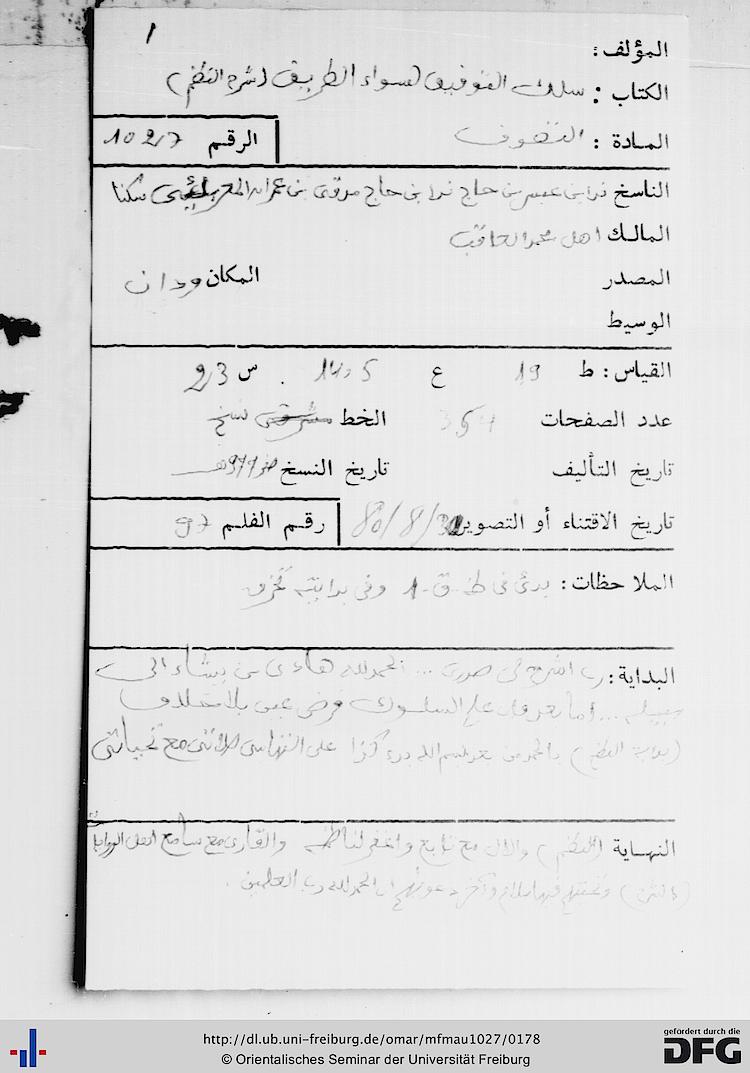 1
المؤلف:
الكتاب: سلك التوفيق لسواء الطريق (شرح النظم)
المادة: التصوف
الرقم 1027
الناسخ بن حاج بن حاج بن عمران سكنا
المالك اهل محمد العاقب
المصدر
المكان ودان
الوسيط
القياس: ط 19 ع 14,5 س 23
عدد الصفحات 354
الخط نسخ
تاريخ التأليف
تاريخ النسخ
تاريخ الاقتناء أو التصوير 80/8/31
رقم الفلم 97
الملاحظات: بدئ في ظ ق 1 وفي بدايته تخرق
البداية: رب اشرح لي صدري ... الحمد لله هادي من يشاء الى
سبيله ... اما بعد فان علم السلوك فرض عين بلا خلاف
(بداية النظم) بالحمد من بعد بسم الله بدء كذا على التهامي صلاتي مع تحياتي
النهاية (النظم) والال مع تابع واغفر لناظمه والقارئ مع سامع
(الشرح) وتحيتهم فيها سلام وآخر دعواهم ان الحمد لله رب العلمين.
http://dl.ub.uni-freiburg.de/omar/mfmau1027/0178
© Orientalisches Seminar der Universität Freiburg
gefördert durch die
DFG